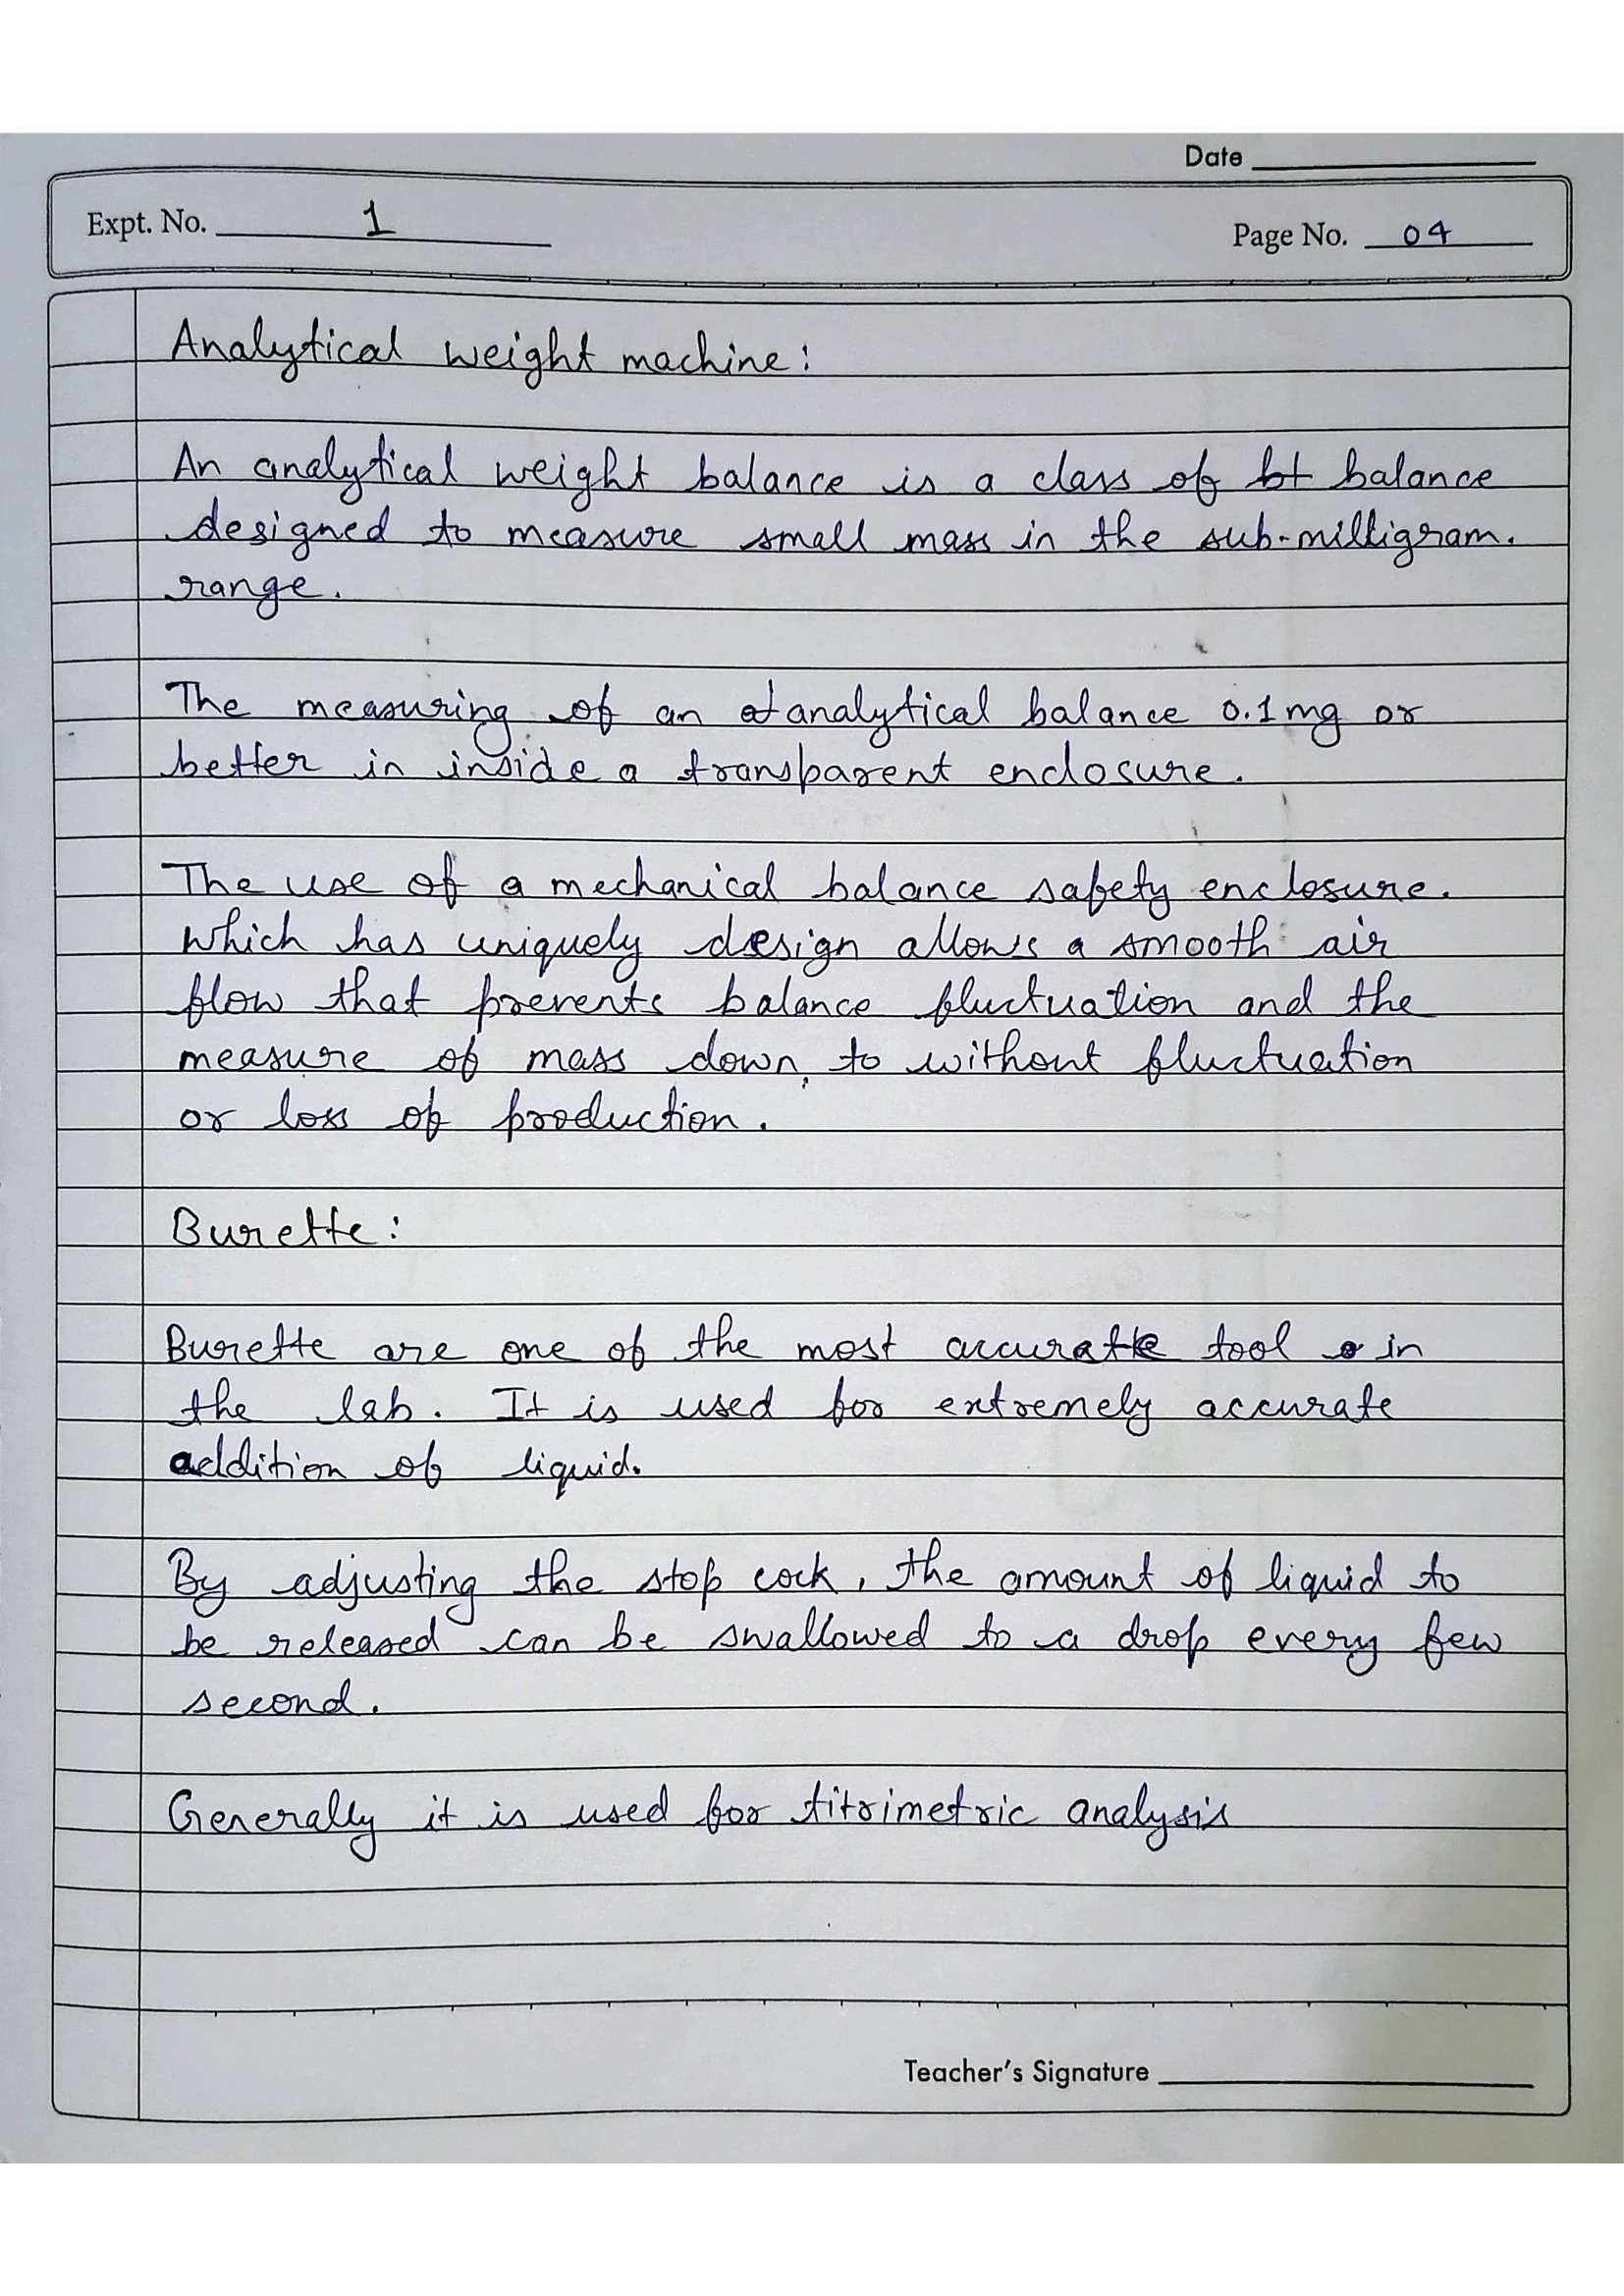 Date
Expt. No. 1
Page No. 04
Analytical weight machine:
An analytical weight balance is a class of bt balance
designed to measure small mass in the sub-milligram.
range.
The measuring of an analytical balance 0.1mg or
better in inside a transparent enclosure.
The use of a mechanical balance safety enclosure.
Which has uniquely design allows a smooth air
flow that prevents balance fluctuation and the
measure of mass down, to without fluctuation
or loss of production.
Burette:
Burette are one of the most accurate tool in
the lab. It is used for extremely accurate
addition of liquid.
By adjusting the stop cock, the amount of liquid to
be released can be swallowed to a drop every few
second.
Generally it is used for titrimetric analysis
Teacher's Signature